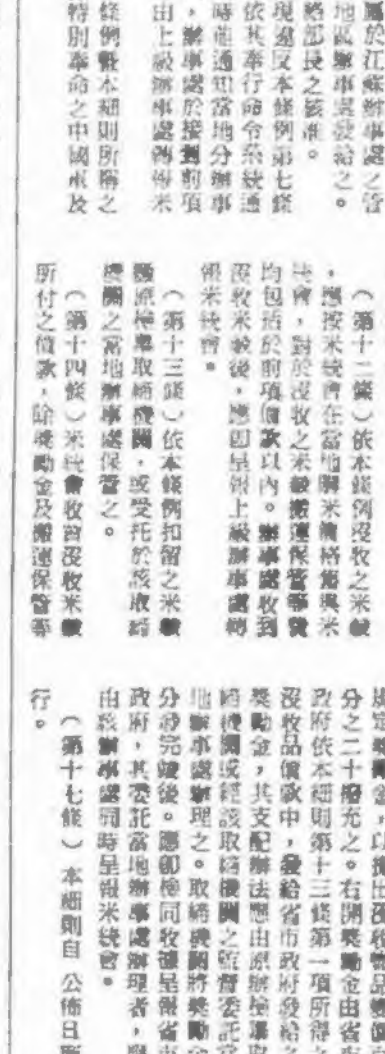 屬於江蘇辦事處之管
地區辦事處發給之。
絡部長之核准。
現違反本條例第七條
依其奉行命令系統通
時能通知當地分辦事
，辦事處於接到前項
由上級辦事處轉傳米
條例暨本細則所稱之
特別奉命之中國軍及
（第十二條）依本條例沒收之米穀
，應按米統會在當地購米價格售與米
統會，對於沒收之米穀搬運保管等費
均包括於前項價款以內。辦事處收到
沒收米穀後，應即呈報上級辦事處轉
報米統會。
（第十三條）依本條例扣留之米穀
應原檢舉取締機關，或受托於該取締
機關之當地辦事處保管之。
（第十四條）米統會收容沒收米穀
所付之價款，除獎勵金及搬運保管等
規定獎勵金，以提出沒收物品變價百
分之二十撥充之。右開獎勵金由省市
政府依本細則第十三條第一項所得之
沒收品價款中，發給省市政府發給之
獎勵金，其支配辦法應由原辦檢舉取
締機關或經該取締機關之監督委託當
地辦事處辦理之。取締機關將獎勵金
分發完竣後。應卽檢同收據呈報省市
政府，其委託當地辦事處辦理者，
由該辦事處同時呈報米統會。
（第十七條）本細則自 公佈日施
行。